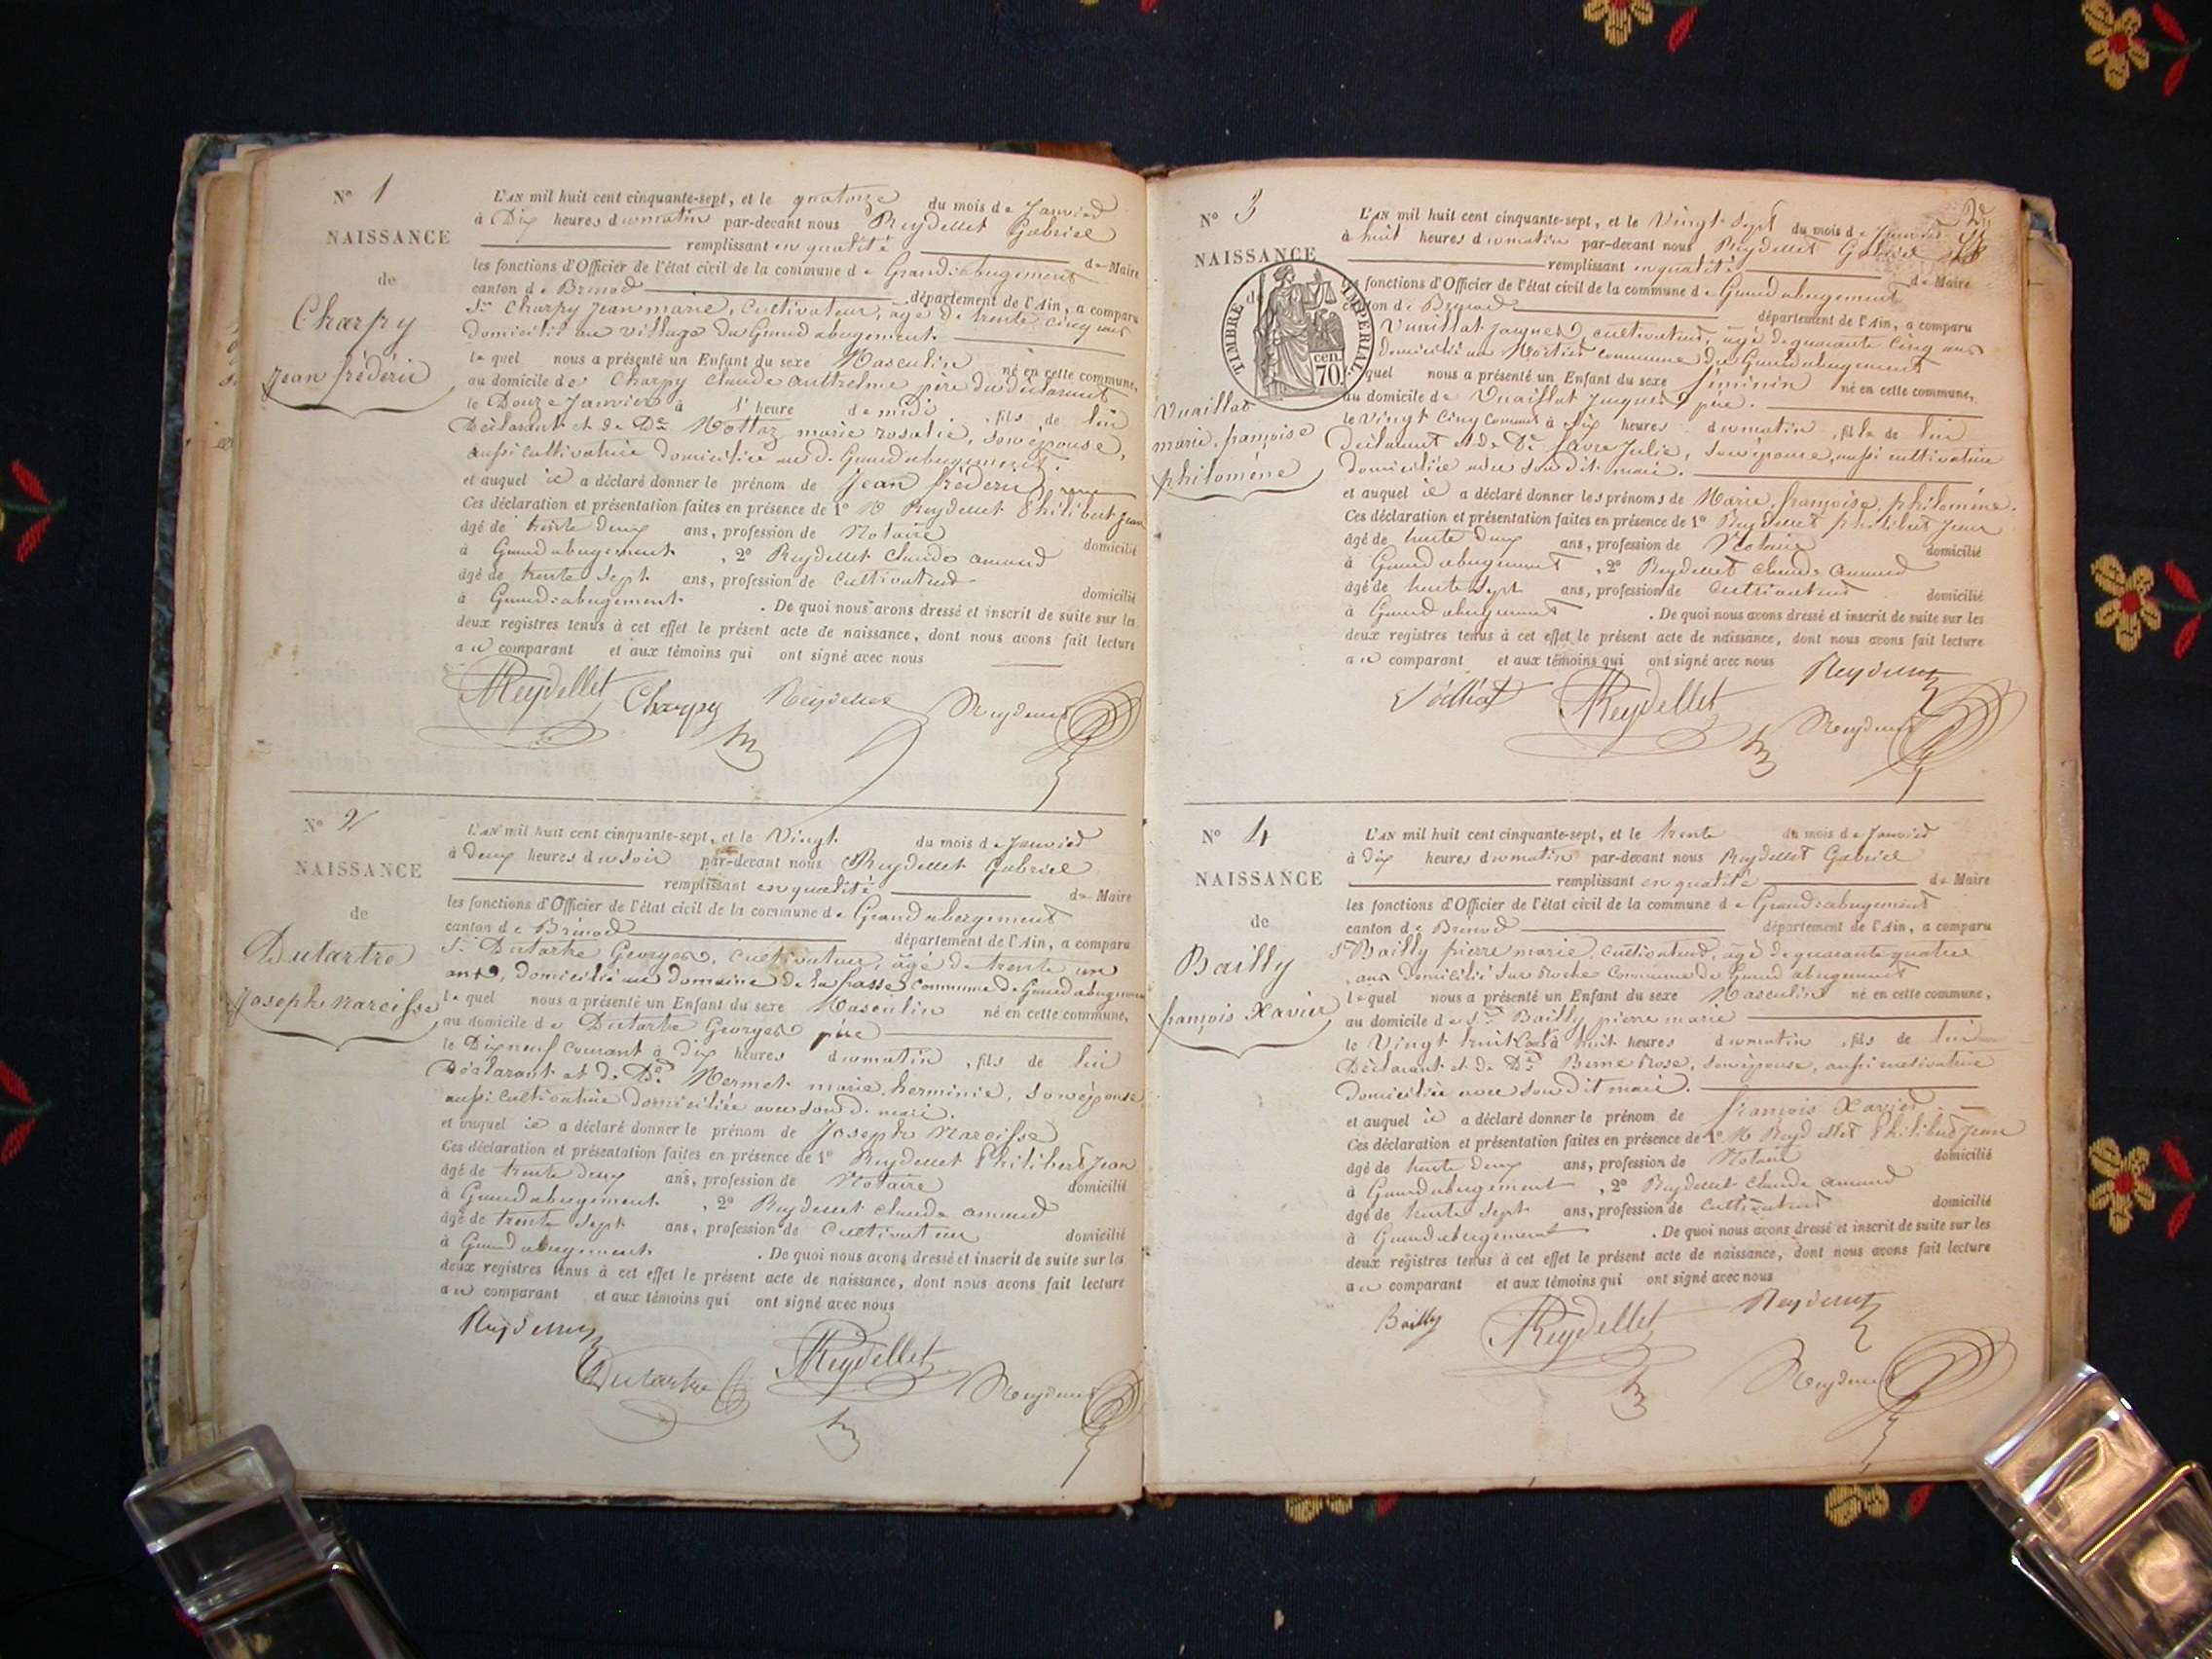 N° 1
NAISSANCE
de
Charpy
Jean fréderic
L'AN mil huit cent cinquante-sept, et le quatorze du mois de Janvier
à Dix heures du matin par-devant nous Reydellet Gabriel
remplissant en qualité de Maire
les fonctions d'Officier de l'état civil de la commune de Grand-abergement
canton de Brénod département de l'Ain, a comparu
Sr Charpy Jean marie, cultivateur, âgé de trente cinq ans
domicilié au village du Grand abergement.
lequel nous a présenté un Enfant du sexe Masculin né en cette commune,
au domicile de Charpy Claude Anthelme père du déclarant
le Douze Janvier à 1' heure de midi, fils de lui
Déclarant et de De Mottaz marie rosalie, son épouse,
aussi cultivatrice domiciliée au d. Grand abergement.
et auquel il a déclaré donner le prénom de Jean fréderic
Ces déclaration et présentation faites en présence de 1° M Reydellet Philibert Jean
âgé de trente deux ans, profession de Notaire domicilié
à Grand abergement, 2° Reydellet Claude amand
âgé de trente sept ans, profession de Cultivateur domicilié
à Grand-abergement. De quoi nous avons dressé et inscrit de suite sur les
deux registres tenus à cet effet le présent acte de naissance, dont nous avons fait lecture
au comparant et aux témoins qui ont signé avec nous
Reydellet Charpy Reydellet Reydellet
N° 2
NAISSANCE
de
Dutartre
Joseph Narcisse
L'AN mil huit cent cinquante-sept, et le Vingt du mois de Janvier
à deux heures du soir par-devant nous Reydellet Gabriel
remplissant en qualité de Maire
les fonctions d'Officier de l'état civil de la commune de Grand abergement
canton de Brénod département de l'Ain, a comparu
Sr Dutartre Georges, cultivateur, âgé de trente un
ans, domicilié au domaine de la fasse commune de Grand abergement
lequel nous a présenté un Enfant du sexe Masculin né en cette commune,
au domicile de Dutartre Georges père
le Dix neuf courant à dix heures du matin, fils de lui
Déclarant et de De Mermet marie herminie, son épouse
aussi cultivatrice domiciliée avec son d. mari.
et auquel il a déclaré donner le prénom de Joseph Narcisse
Ces déclaration et présentation faites en présence de 1° Reydellet Philibert Jean
âgé de trente deux ans, profession de Notaire domicilié
à Grand abergement, 2° Reydellet Claude amand
âgé de trente sept ans, profession de Cultivateur domicilié
à Grand abergement. De quoi nous avons dressé et inscrit de suite sur les
deux registres tenus à cet effet le présent acte de naissance, dont nous avons fait lecture
au comparant et aux témoins qui ont signé avec nous
Reydellet
Dutartre Reydellet Reydellet
N° 3
NAISSANCE
de
TIMBRE IMPERIAL
70 cen.
Vuaillat
marie françoise
philomène
L'AN mil huit cent cinquante-sept, et le Vingt Sept du mois de Janvier
à huit heures du matin par-devant nous Reydellet Gabriel
remplissant en qualité de Maire
fonctions d'Officier de l'état civil de la commune de Grand abergement
canton de Brénod département de l'Ain, a comparu
Vuaillat Jacques, cultivateur, âgé de quarante cinq ans
domicilié au Mortier commune du Grand abergement
lequel nous a présenté un Enfant du sexe féminin né en cette commune,
au domicile de Vuaillat Jacques père.
le Vingt cinq courant à Six heures du matin, fille de lui
déclarant et de De favre Julie, son épouse, aussi cultivatrice
domiciliée avec son dit mari.
et auquel il a déclaré donner les prénoms de Marie françoise philomène.
Ces déclaration et présentation faites en présence de 1° Reydellet philibert Jean
âgé de trente deux ans, profession de Notaire domicilié
à Grand abergement, 2° Reydellet Claude amand
âgé de trente sept ans, profession de Cultivateur domicilié
à Grand abergement. De quoi nous avons dressé et inscrit de suite sur les
deux registres tenus à cet effet le présent acte de naissance, dont nous avons fait lecture
au comparant et aux témoins qui ont signé avec nous Reydellet
Reydellet Reydellet
N° 4
NAISSANCE
de
Bailly
françois Xavier
L'AN mil huit cent cinquante-sept, et le trente du mois de Janvier
à dix heures du matin par-devant nous Reydellet Gabriel
remplissant en qualité de Maire
les fonctions d'Officier de l'état civil de la commune de Grand-abergement
canton de Brénod département de l'Ain, a comparu
Sr Bailly pierre marie, cultivateur, âgé de quarante quatre
ans domicilié Sur Roche Commune du Grand abergement
lequel nous a présenté un Enfant du sexe Masculin né en cette commune,
au domicile de Sr Bailly pierre marie
le Vingt huit Cot à huit heures du matin, fils de lui
Déclarant et de De Berne Rose, son épouse, aussi cultivatrice
domiciliée avec son dit mari.
et auquel il a déclaré donner le prénom de françois Xavier.
Ces déclaration et présentation faites en présence de 1° M Reydellet Philibert Jean
âgé de trente deux ans, profession de Notaire domicilié
à Grand abergement, 2° Reydellet Claude amand
âgé de trente Sept ans, profession de Cultivateur domicilié
à Grand abergement. De quoi nous avons dressé et inscrit de suite sur les
deux registres tenus à cet effet le présent acte de naissance, dont nous avons fait lecture
au comparant et aux témoins qui ont signé avec nous
Bailly Reydellet Reydellet
Reydellet